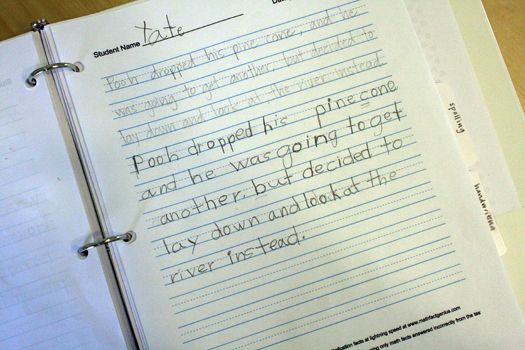 Student Name Tate
Pooh dropped his pine cone, and he
was going to get another, but decided to
lay down and look at the river instead.
Pooh dropped his pine cone
and he was going to get
another, but decided to
lay down and look at the
river instead.
spelling
handwriting
facts at lightning speed at www.mathfactgenius.com
only math facts answered incorrectly from the